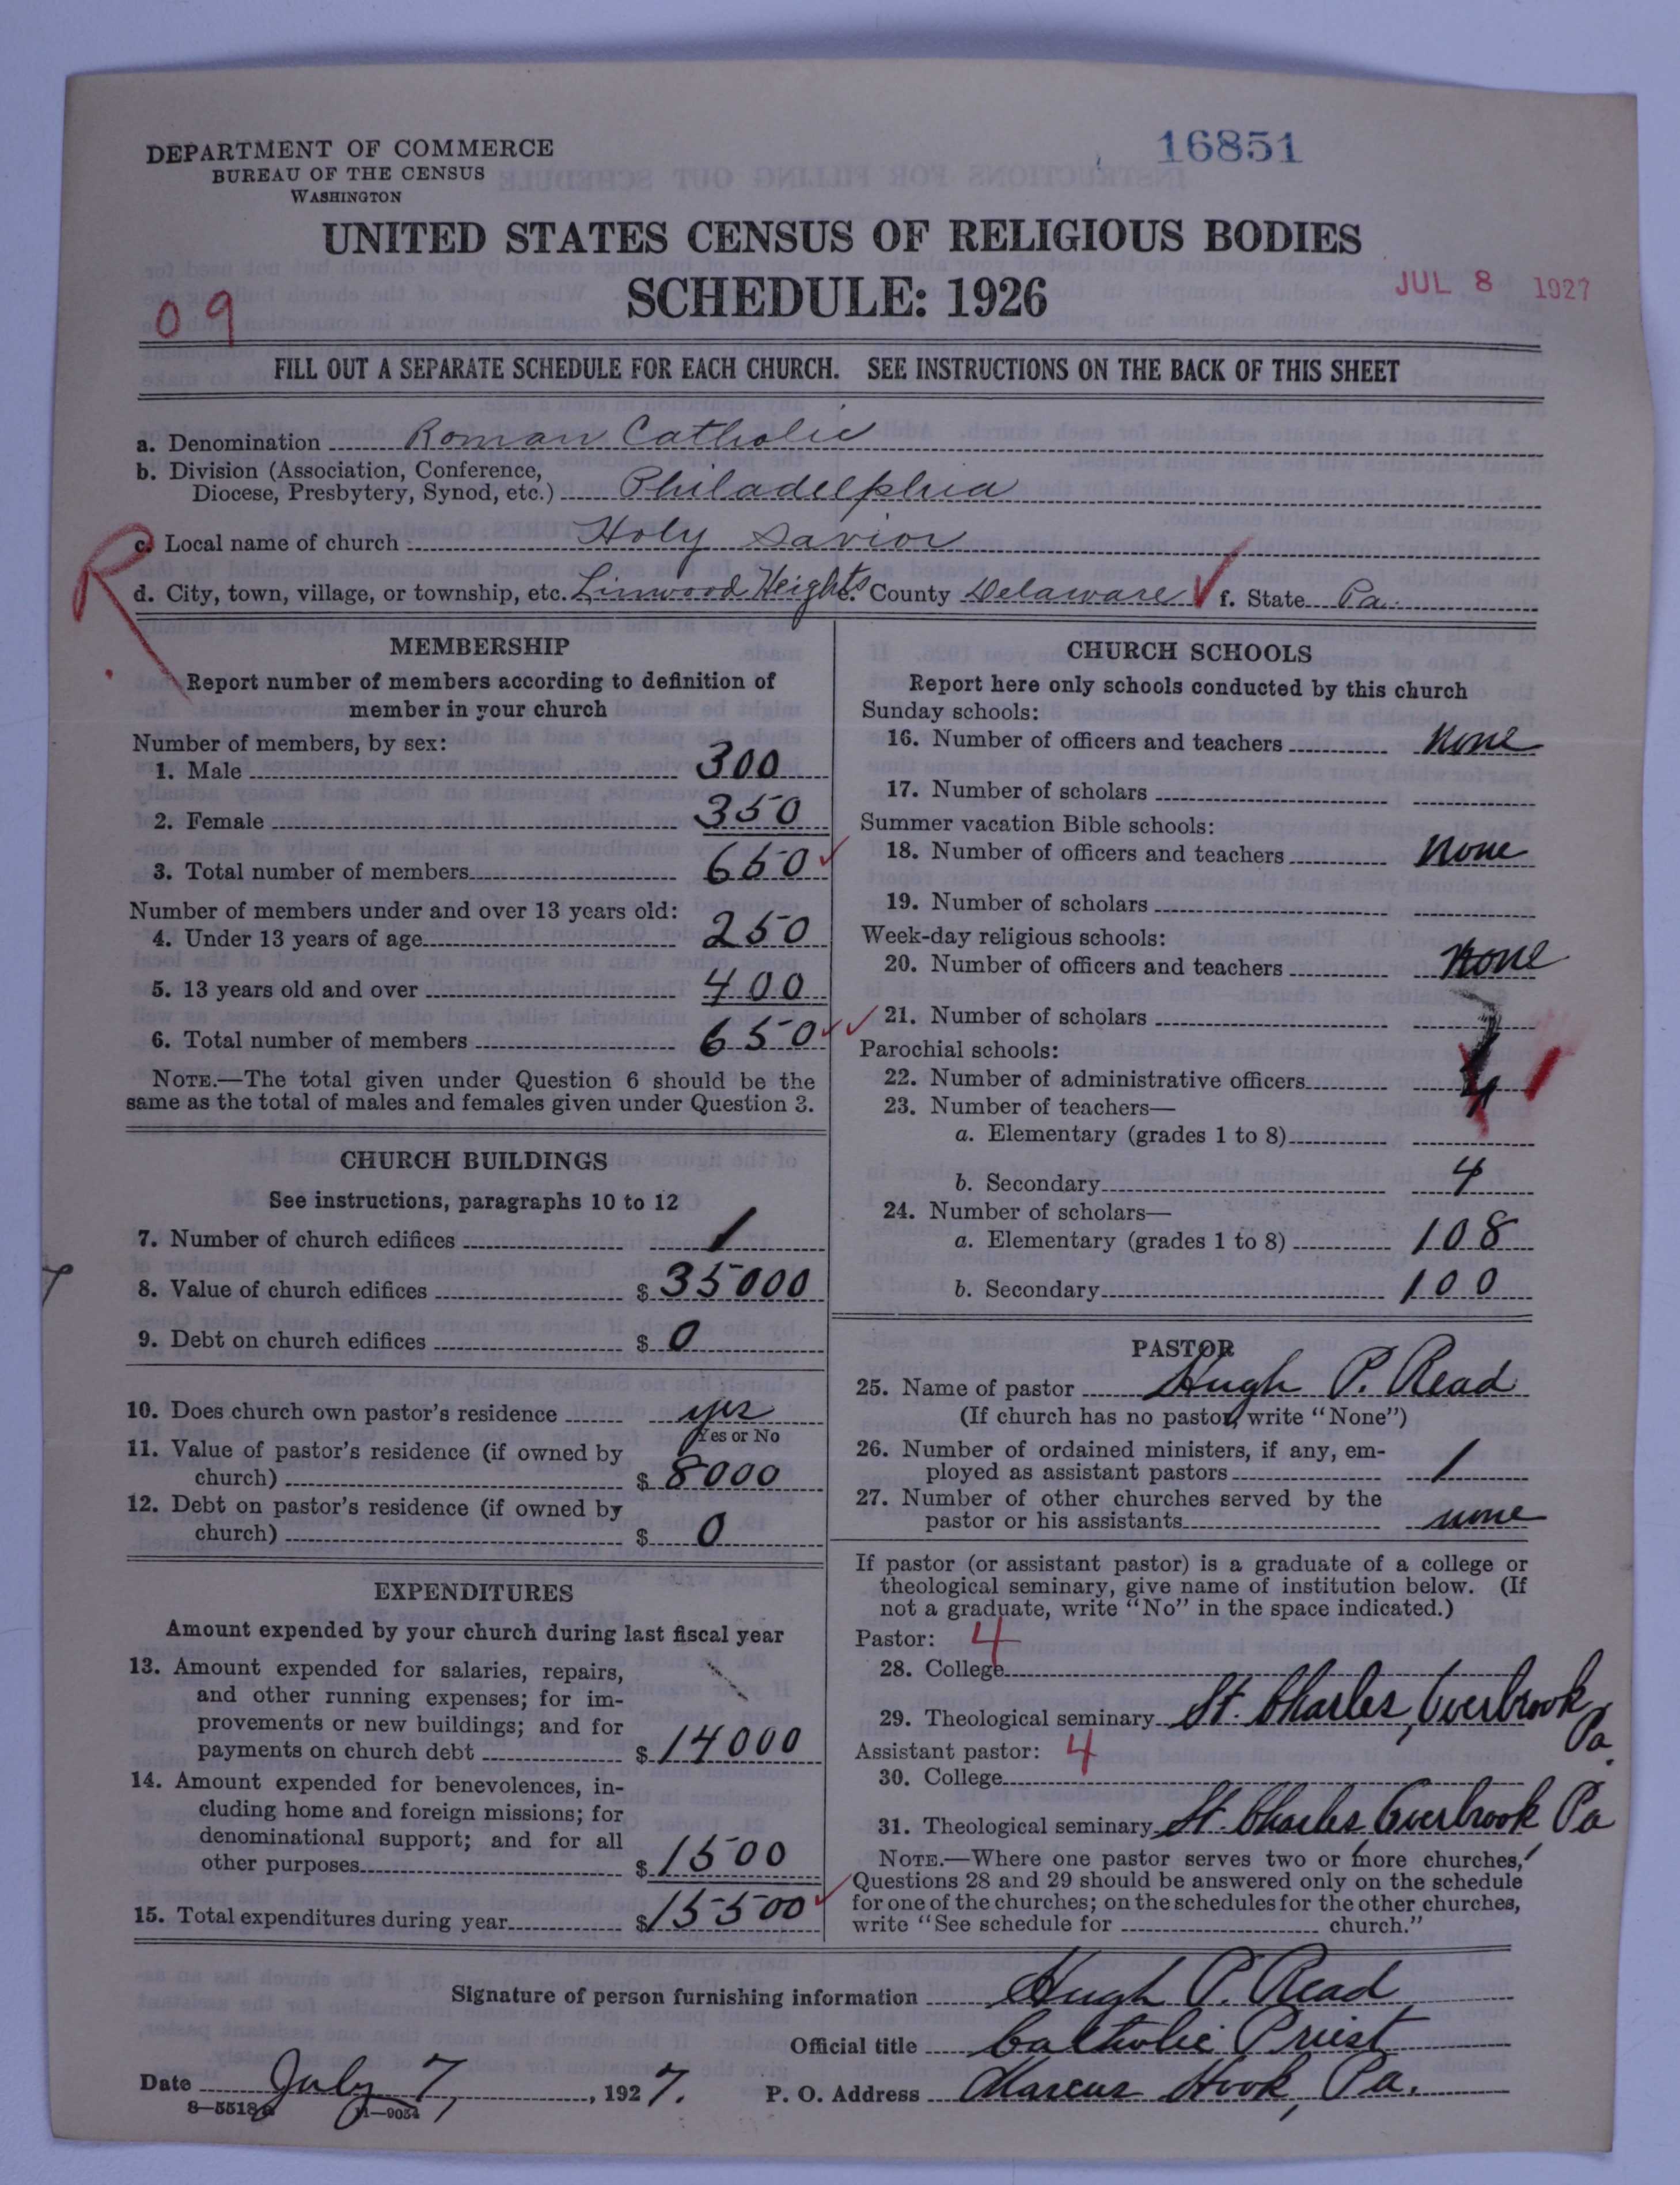 DEPARTMENT OF COMMERCE
BUREAU OF THE CENSUS
WASHINGTON
16851
UNITED STATES CENSUS OF RELIGIOUS BODIES
SCHEDULE: 1926
JUL 8 1927
09
FILL OUT A SEPARATE SCHEDULE FOR EACH CHURCH. SEE INSTRUCTIONS ON THE BACK OF THIS SHEET
a. Denomination Roman Catholic
b. Division (Association, Conference,
Diocese, Presbytery, Synod, etc.) Philadelphia
c. Local name of church Holy Savior
R
d. City, town, village, or township, etc. Linwood Heights e. County Delaware f. State Pa.
MEMBERSHIP
Report number of members according to definition of
member in your church
Number of members, by sex:
1. Male 300
2. Female 350
3. Total number of members 650
Number of members under and over 13 years old:
4. Under 13 years of age 250
5. 13 years old and over 400
6. Total number of members 650
NOTE.—The total given under Question 6 should be the
same as the total of males and females given under Question 3.
CHURCH BUILDINGS
See instructions, paragraphs 10 to 12
7. Number of church edifices 1
8. Value of church edifices $ 35000
9. Debt on church edifices $ 0
10. Does church own pastor's residence yes
Yes or No
11. Value of pastor's residence (if owned by
church) $ 8000
12. Debt on pastor's residence (if owned by
church) $ 0
EXPENDITURES
Amount expended by your church during last fiscal year
13. Amount expended for salaries, repairs,
and other running expenses; for im-
provements or new buildings; and for
payments on church debt $ 14000
14. Amount expended for benevolences, in-
cluding home and foreign missions; for
denominational support; and for all
other purposes $ 1500
15. Total expenditures during year $ 15500
CHURCH SCHOOLS
Report here only schools conducted by this church
Sunday schools:
16. Number of officers and teachers None
17. Number of scholars
Summer vacation Bible schools:
18. Number of officers and teachers None
19. Number of scholars
Week-day religious schools:
20. Number of officers and teachers None
21. Number of scholars
Parochial schools:
22. Number of administrative officers 1
23. Number of teachers—
a. Elementary (grades 1 to 8)
b. Secondary 4
24. Number of scholars—
a. Elementary (grades 1 to 8) 108
b. Secondary 100
PASTOR
25. Name of pastor Hugh P. Read
(If church has no pastor, write "None")
26. Number of ordained ministers, if any, em-
ployed as assistant pastors 1
27. Number of other churches served by the
pastor or his assistants none
If pastor (or assistant pastor) is a graduate of a college or
theological seminary, give name of institution below. (If
not a graduate, write "No" in the space indicated.)
Pastor: 4
28. College
29. Theological seminary St. Charles, Overbrook Pa.
Assistant pastor: 4
30. College
31. Theological seminary St. Charles, Overbrook, Pa
NOTE.—Where one pastor serves two or more churches,
Questions 28 and 29 should be answered only on the schedule
for one of the churches; on the schedules for the other churches,
write "See schedule for church."
Signature of person furnishing information Hugh P. Read
Official title Catholic Priest
Date July 7, 1927. P. O. Address Marcus Hook, Pa.
8—5518a 11—9034